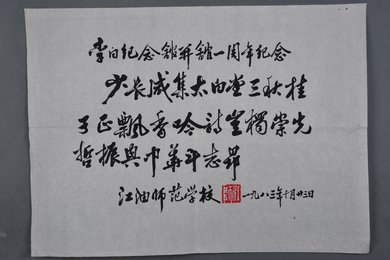 李白纪念舘开舘一周年纪念
少长咸集太白堂三秋桂
子正飄香吟詩豈獨崇先
哲振興中華斗志昂
江油师范学校 一九八三年十月廿三日